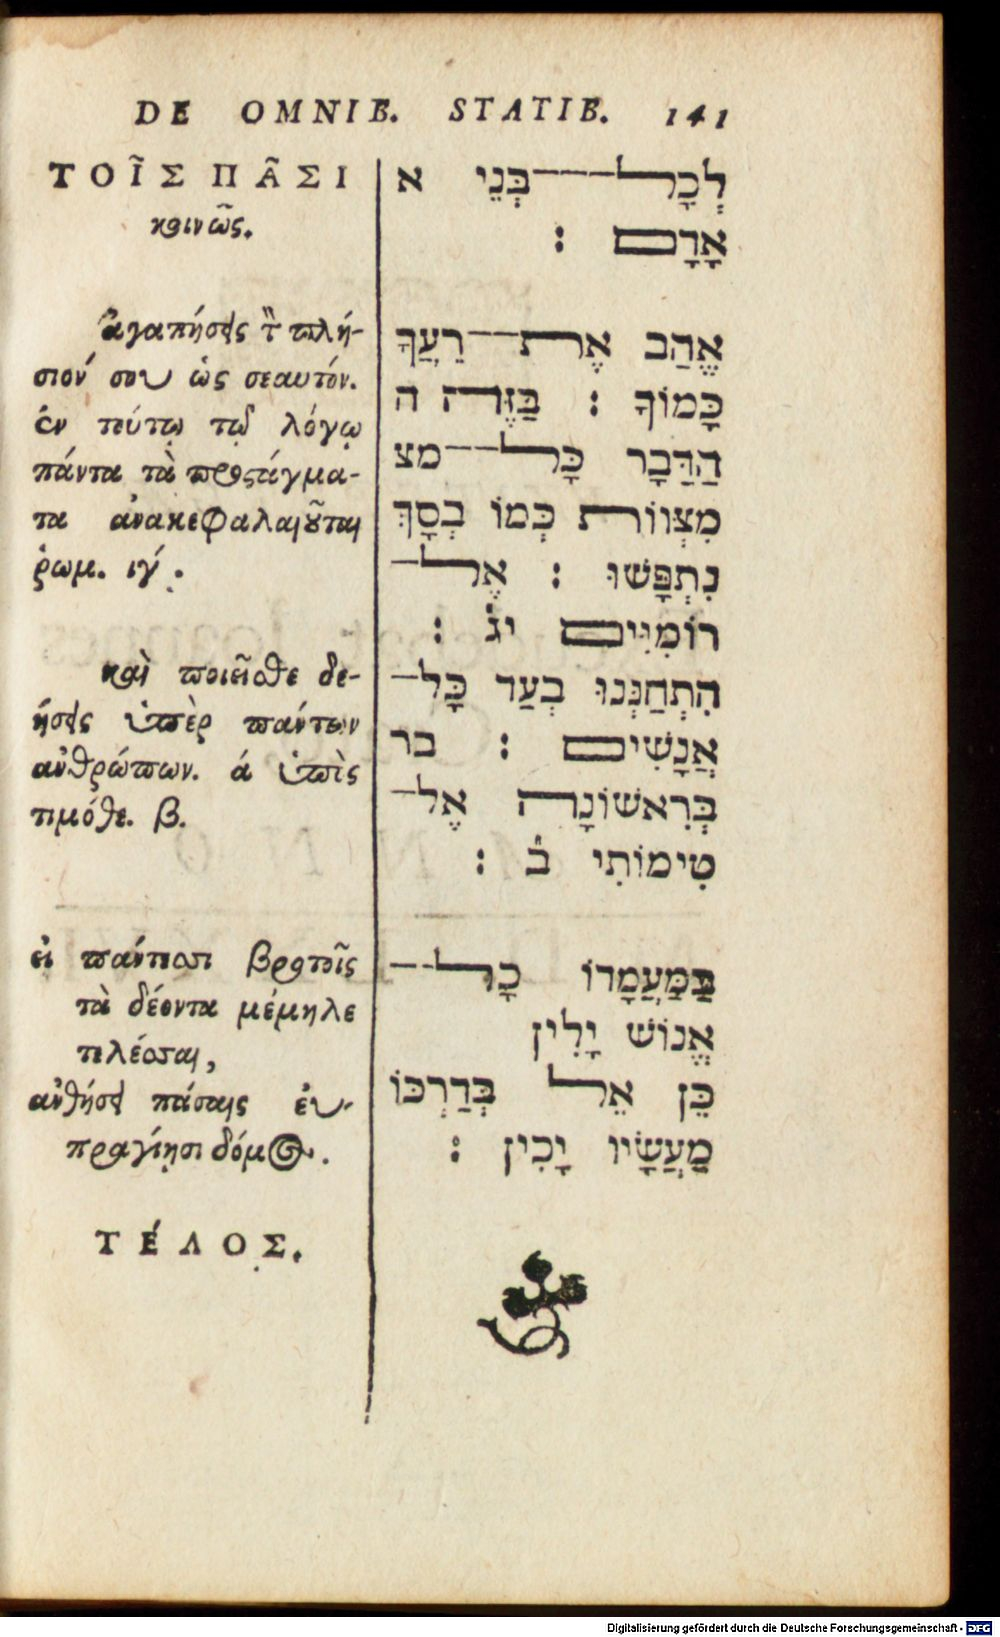 DE OMNIB. STATIB. 141
ΤΟΙ͂Σ ΠΑ͂ΣΙ
κοινῶς.
ἀγαπήσεις τὸν πλή-
σιόν σου ὡς σεαυτόν.
ἐν τούτῳ τῷ λόγῳ
πάντα τὰ προστάγμα-
τα ἀνακεφαλαιοῦται
ῥωμ. ιγ́.
καὶ ποιεῖσθε δε-
ήσεις ὑπὲρ πάντων
ἀνθρώπων. ά
τιμόθε. β.
εἰ πάντεσσι βροτοῖς
τὰ δέοντα μέμηλε
τελέσσαι,
ἀνθήσει πάσαις ἐυ-
πραγίῃσι δόμος.
ΤΈΛΟΣ.
לְכָל בְּנֵי א
אָדָם :
אֱהַב אֶת רֵעֲךָ
כָּמוֹךָ : בַּזֶּה ה
הַדַּבָר כָּל מצ
מִצְווֹת כְּמוֹ בְסָךְ
נִתְפָּשׂוּ : אֶל
רוֹמִיִּים יג :
הִתְחַנְּנוּ בְעַד כָּל
אֲנָשִׁים : בר
בְּרִאשׁוֹנָה אֶל
טִימוֹתִי ב :
בַּמַּעֲמָדוֹ כָל
אֱנוֹשׁ יָלִין
כֵּן אֵל בְּדַרְכּוֹ
מַעֲשָׂיו יָכִין :
Digitalisierung gefördert durch die Deutsche Forschungsgemeinschaft - DFG